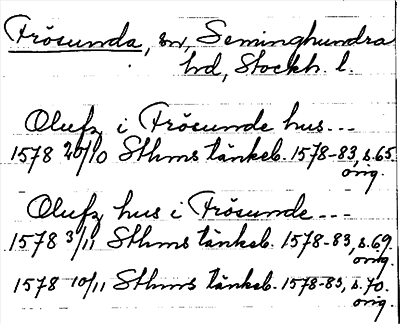 Frösunda, sn, Seminghundra
hd, Stockh. l.
Olufz i Frösunde hus---
1578 20/10 Sthms tänkeb. 1578-83, s.65.
orig.
Olufz hus i Frösunde---
1578 3/11 Sthms tänkeb. 1578-83, s.69.
orig.
1578 10/11 Sthms tänkeb. 1578-83, s.70.
orig.